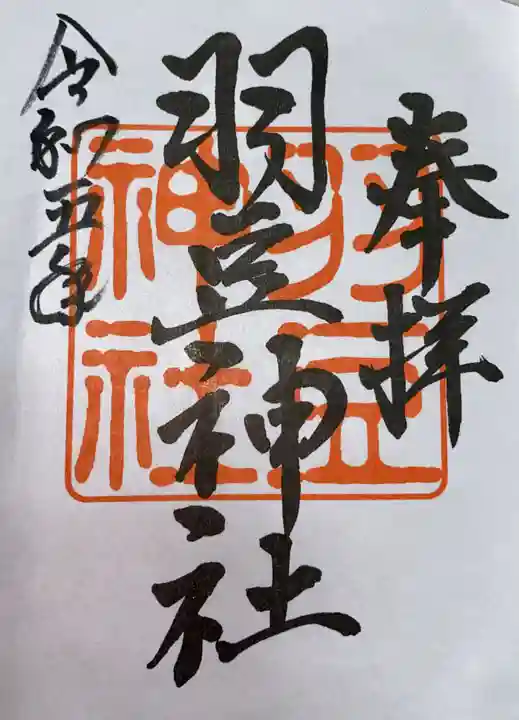 奉拝
羽豆神社
羽豆
神社
令和五年